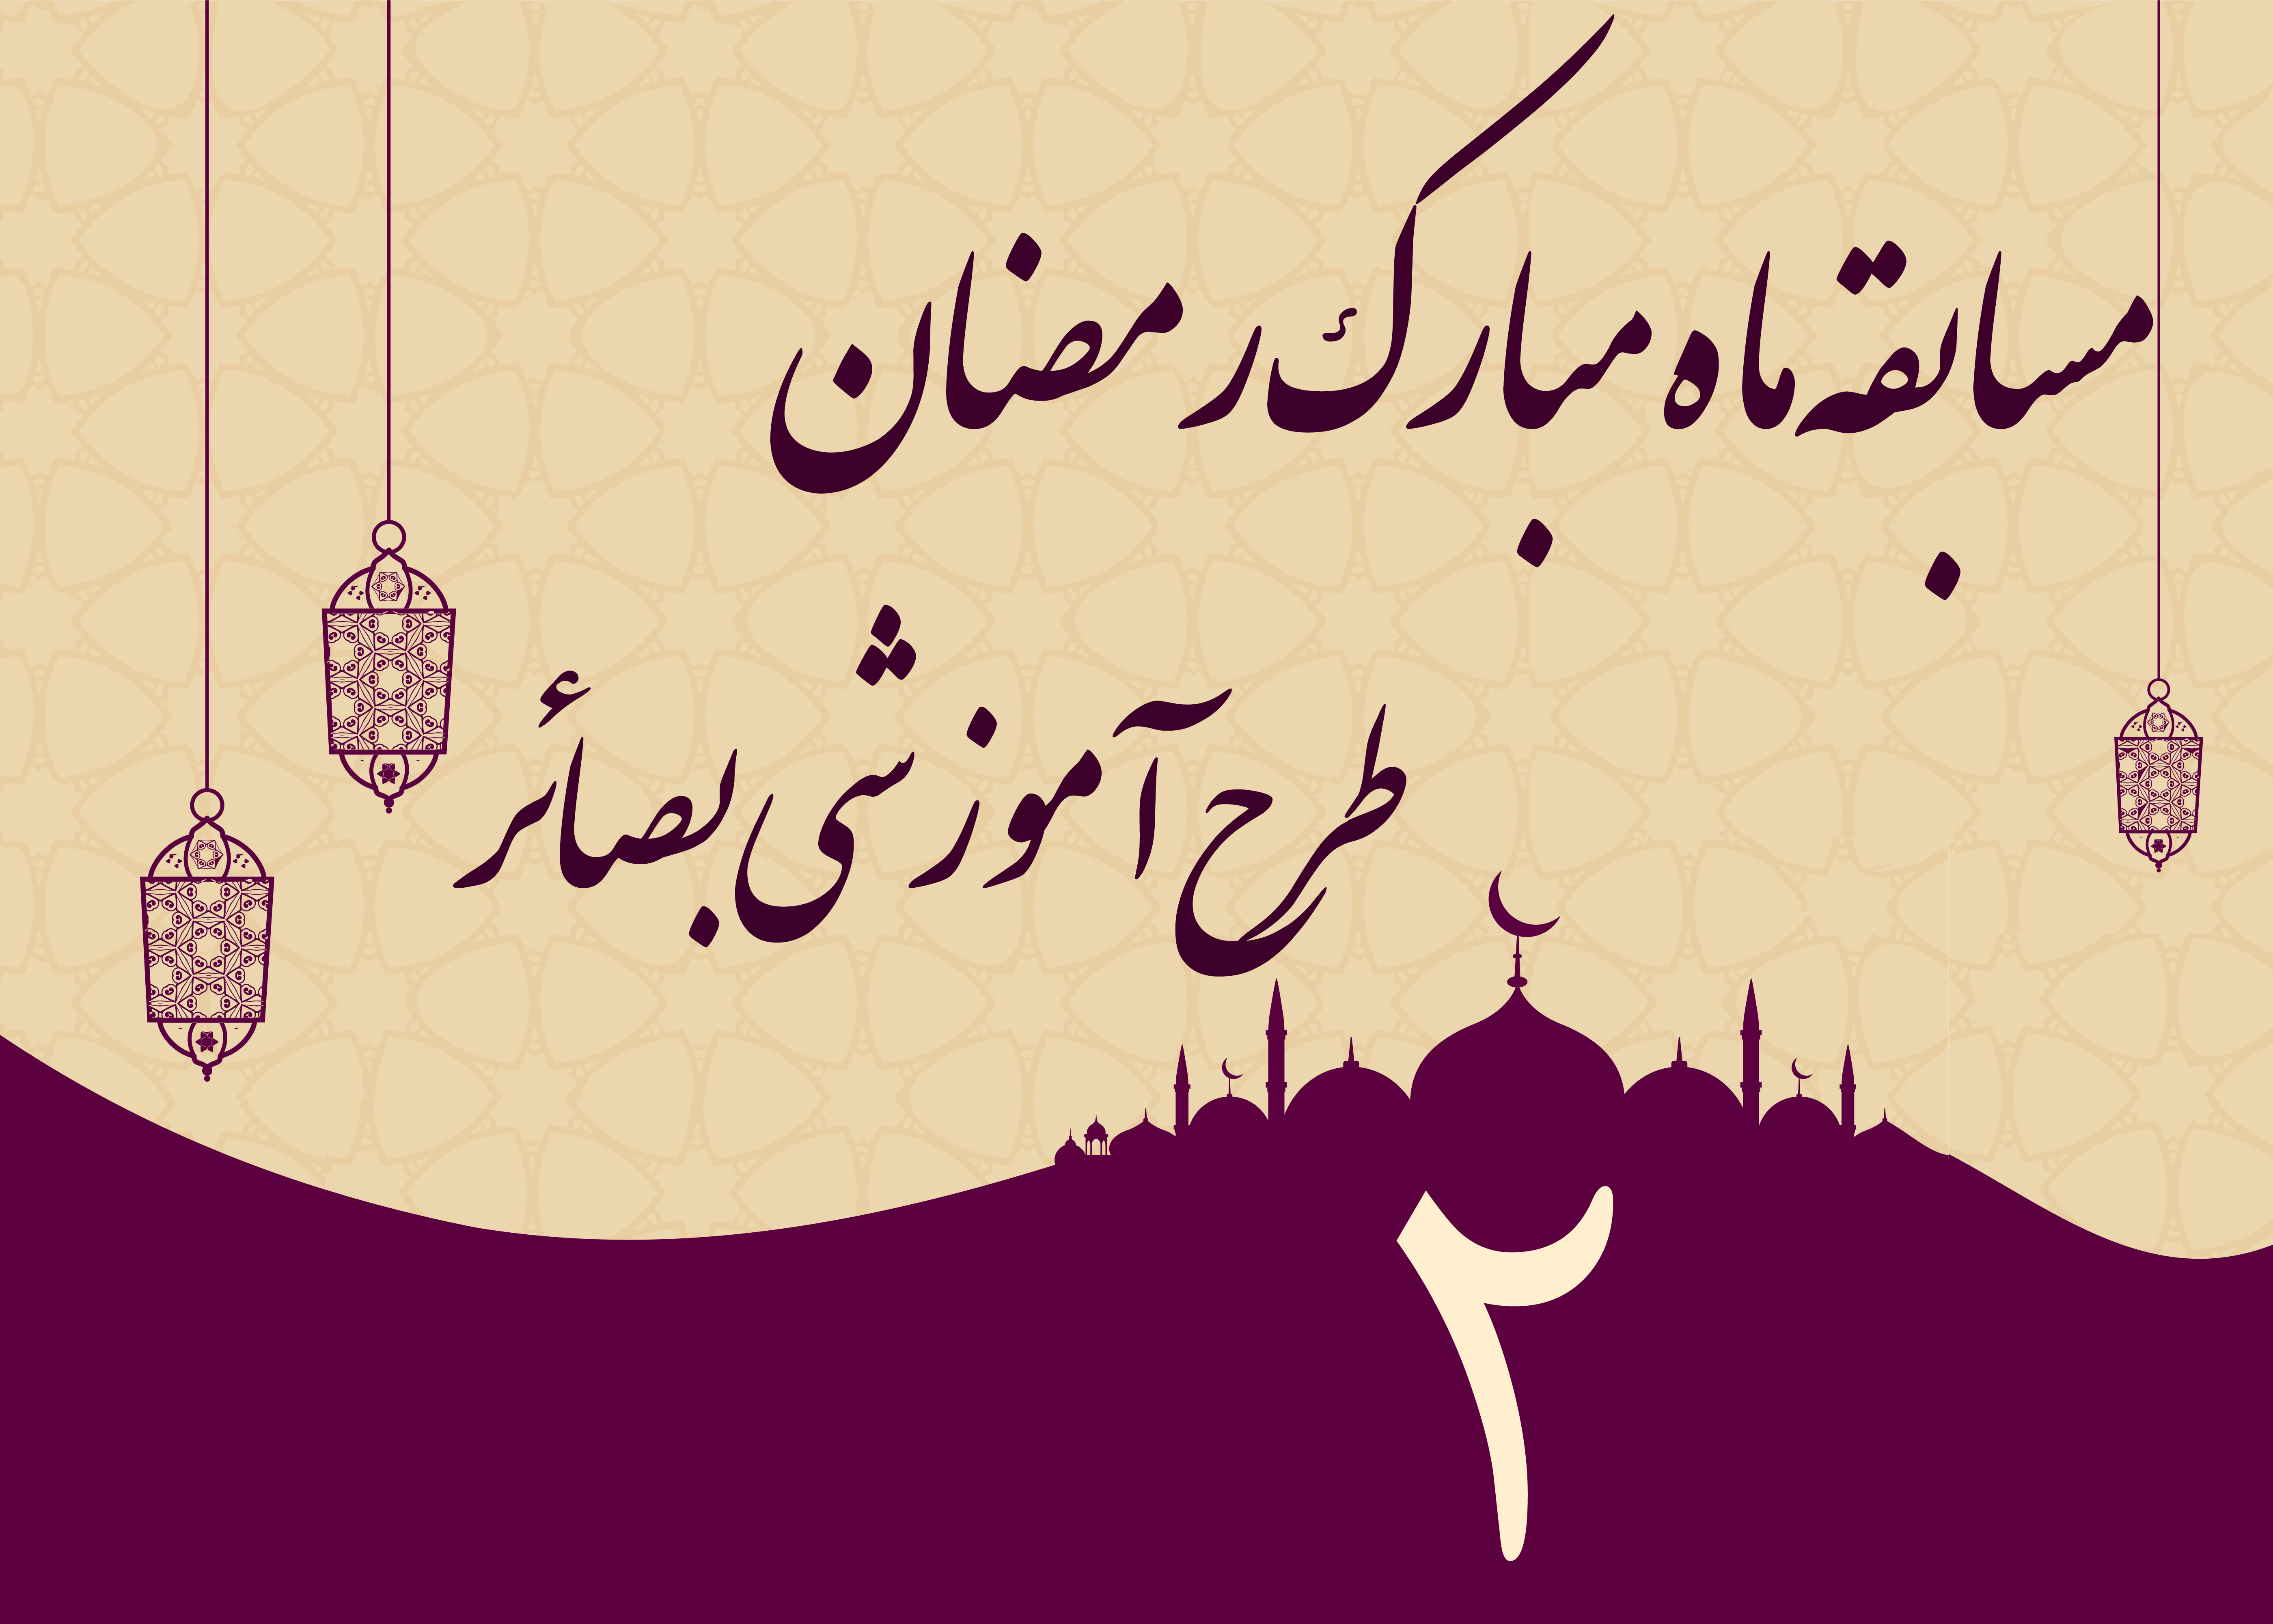 مسابقه ماه مبارک رمضان
طرح آموزشی بصائر
۲